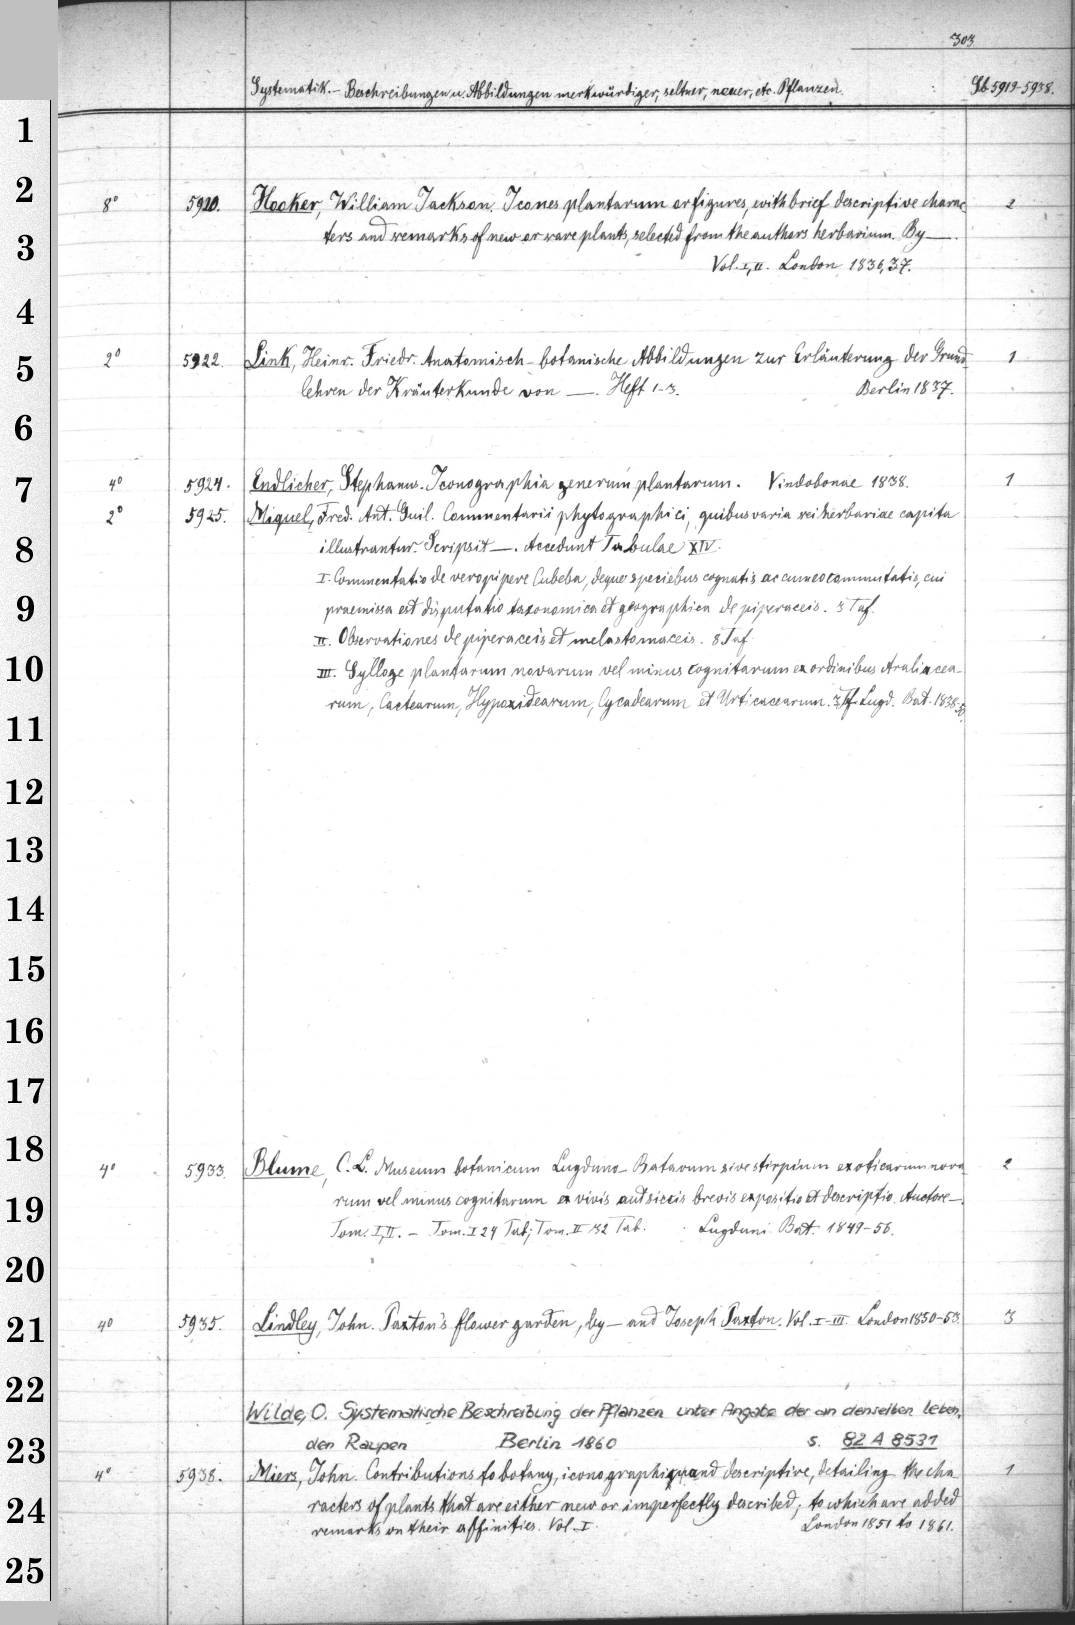 303
Systematik. – Beschreibungen u. Abbildungen merkwürdiger, seltner, neuer, etc. Pflanzen. Lb 5919-5938.
1
2
8° 5920. Hooker, William Jackson. Icones plantarum or figures, with brief descriptive charac 2
ters and remarks of new or rare plants, selected from the authors herbarium. By —.
3
Vol. I, II. London 1836, 37.
4
2° 5922. Link, Heinr. Friedr. Anatomisch-botanische Abbildungen zur Erläuterung der Grund- 1
5
lehren der Kräuterkunde von —. Heft 1-3. Berlin 1837.
6
4° 5924. Endlicher, Stephanus. Iconographia generum plantarum. Vindobonae 1838. 1
7
2° 5925. Miquel, Fred. Ant. Guil. Commentarii phytographici, quibus varia rei herbariae capita
illustrantur. Scripsit —. Accedunt Tabulae XIV.
8
I. Commentatio de vero pipere Cubeba, deque speciebus cognatis ac cum eo commutatis, cui
praemissa est disputatio taxonomica et geographica de piperaceis. 3 Taf.
9
II. Observationes de piperaceis et melastomaceis. 8 Taf
III. Sylloge plantarum novarum vel minus cognitarum ex ordinibus Araliacea-
10
rum, Cactearum, Hypoxidearum, Cycadearum et Urticacearum. 3 Tf. Lugd. Bat. 1838
11
12
13
14
15
16
17
18
4° 5933. Blume, C. L. Museum botanicum Lugduno-Batavum sive stirpium exoticarum nova 2
rum vel minus cognitarum ex vivis aut siccis brevis expositio et descriptio. Auctore —.
19
Tom. I, II. – Tom. I 24 Tab; Tom. II 32 Tab. Lugduni Bat. 1849-56.
20
4° 5935. Lindley, John. Paxton's flower garden, by — and Joseph Paxton. Vol. I-III London 1850-53. 3
21
22
Wilde, O. Systematische Beschreibung der Pflanzen unter Angabe der an denselben leben-
den Raupen Berlin 1860 s. 82 A 8531
23
4° 5938. Miers, John. Contributions to botany, iconographic and descriptive, detailing the cha 1
racters of plants that are either new or imperfectly described; to which are added
24
remarks on their affinities. Vol. I. London 1851 to 1861.
25